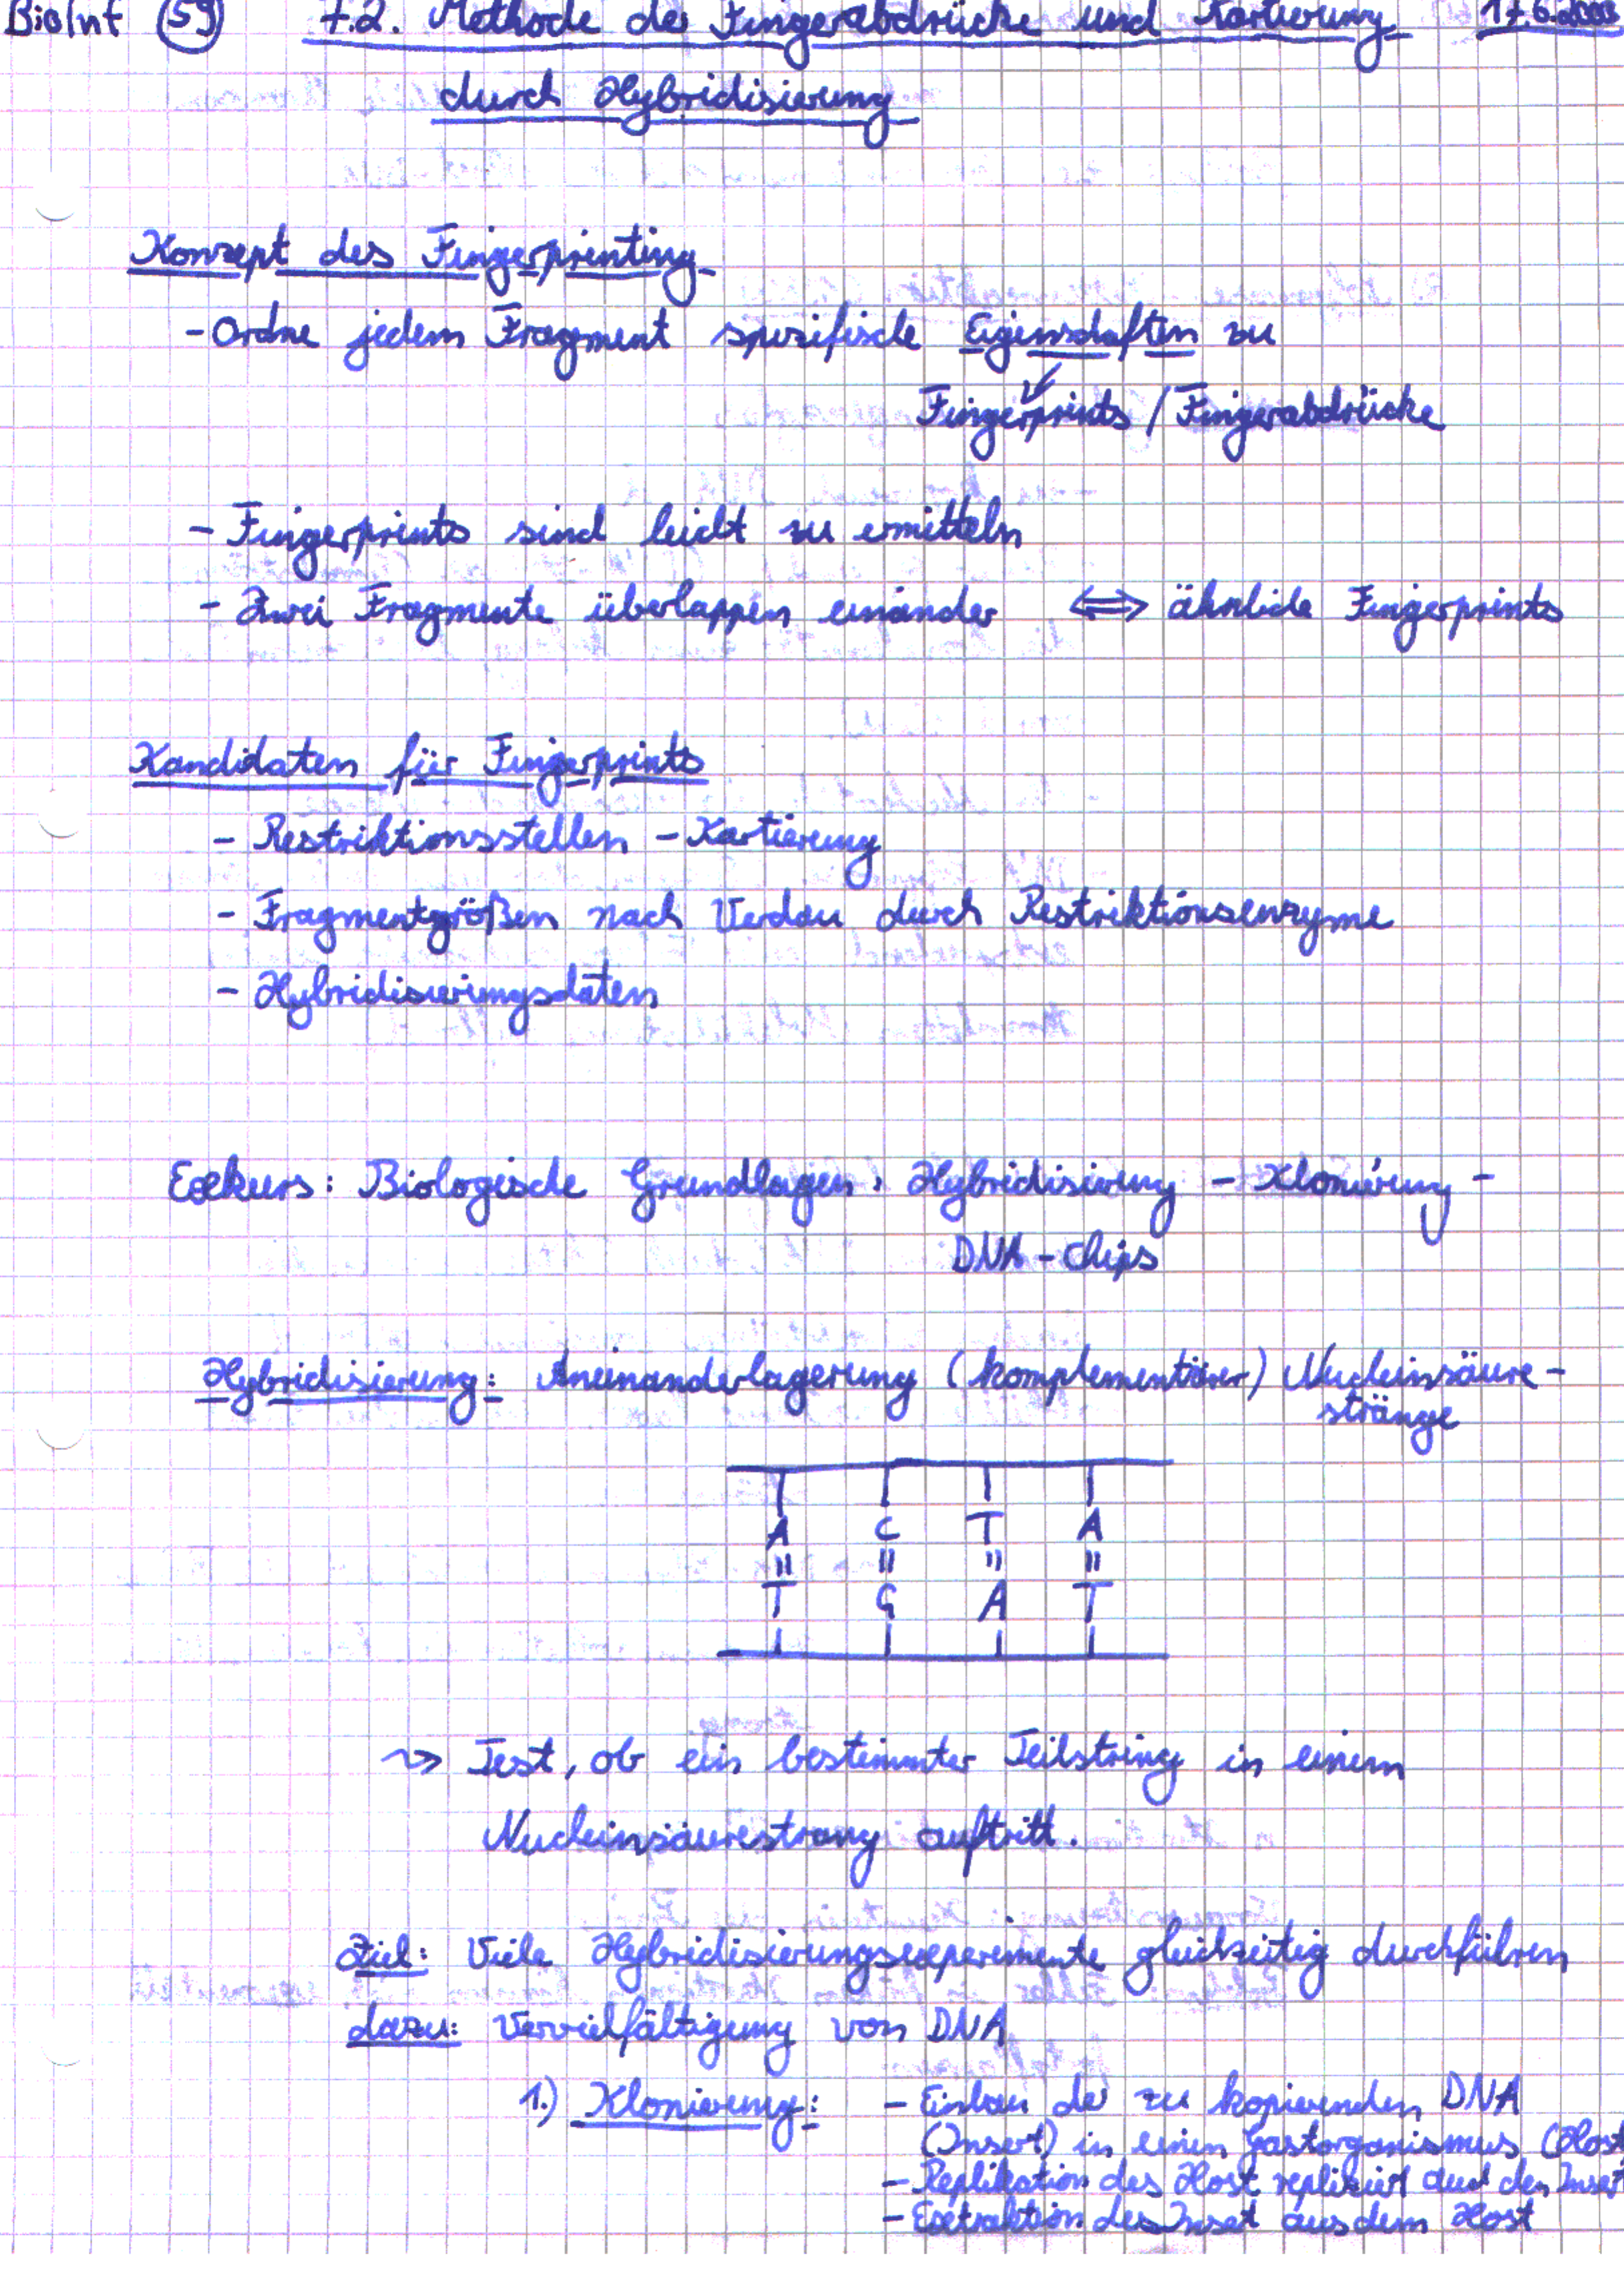 BioInf 59 7.2. Methode der Fingerabdrücke und Kartierung 17.6.2003
durch Hybridisierung
Konzept des Fingerprinting
- Ordne jedem Fragment spezifische Eigenschaften zu
Fingerprints / Fingerabdrücke
- Fingerprints sind leicht zu ermitteln
- Zwei Fragmente überlappen einander ⟺ ähnliche Fingerprints
Kandidaten für Fingerprints
- Restriktionsstellen - Kartierung
- Fragmentgrößen nach Verdau durch Restriktionsenzyme
- Hybridisierungsdaten
Exkurs: Biologische Grundlagen: Hybridisierung - Klonierung -
DNA - Chips
Hybridisierung: Aneinanderlagerung (komplementärer) Nucleinsäure-
stränge
A C T A
T G A T
⇝ Test, ob ein bestimmter Teilstring in einem
Nucleinsäurestrang auftritt.
Ziel: Viele Hybridisierungsexperimente gleichzeitig durchführen
dazu: Vervielfältigung von DNA
1.) Klonierung: - Einbau der zu kopierenden DNA
(Insert) in einen Gastorganismus (Host
- Replikation des Host repliziert auch den Insert
- Extraktion des Insert aus dem Host